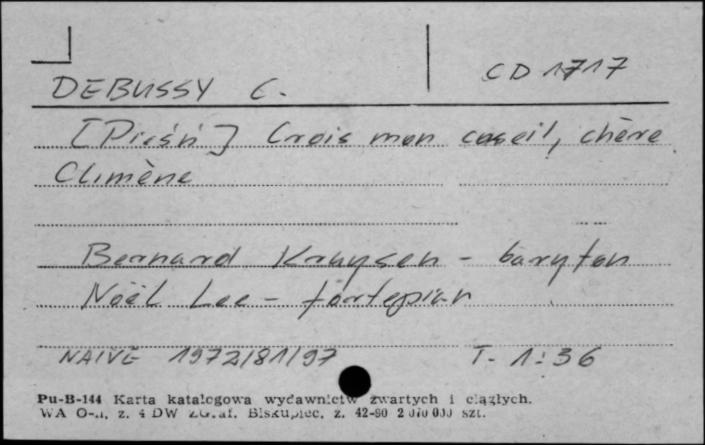 DEBUSSY C.
CD 1717
[Pieśń] Crois mon conseil, chère
Climène
Bernard Kruysen - baryton
Noël Lee - fortepian
NAIVE 1972/81/97 T- 1:36
Pu-B-144 Karta katalogowa wydawnictw zwartych i ciągłych.
WA O-n, z. 4 DW Biskupiec, z. 42-80 2 070 000 szt.